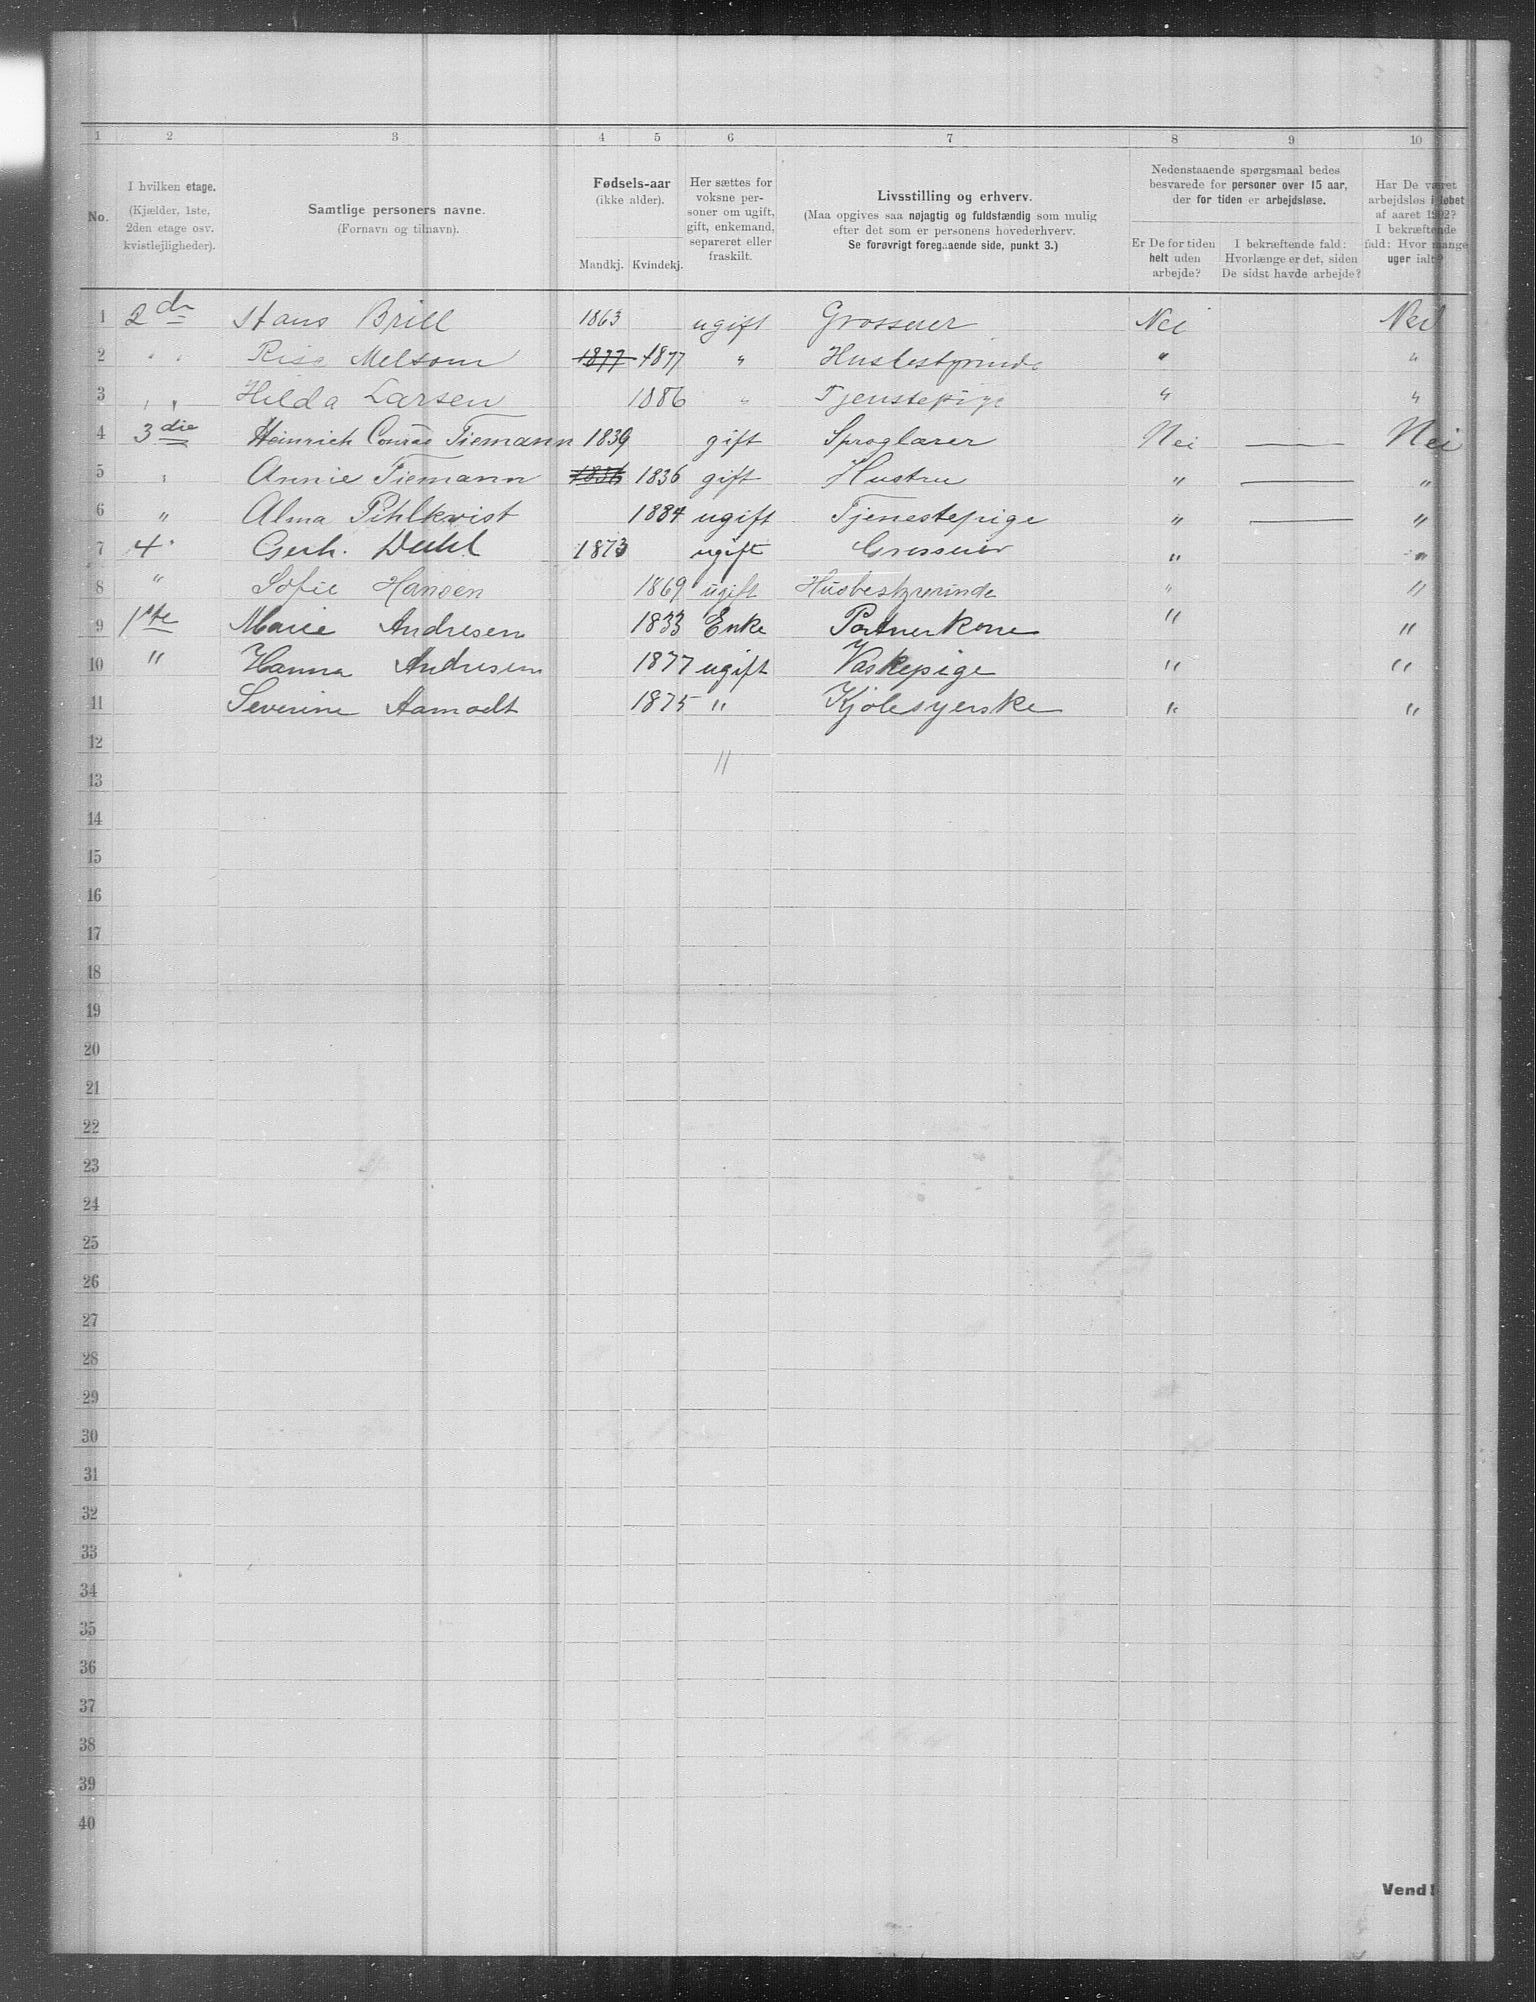 1 2 3 4 5 6 7 8 9 10
No.
I hvilken etage.
(Kjælder, 1ste,
2den etage osv.
kvistlejligheder).
Samtlige personers navne.
(Fornavn og tilnavn).
Fødsels-aar
(ikke alder).
Mandkj. Kvindekj.
Her sættes for
voksne per-
soner om ugift,
gift, enkemand,
separeret eller
fraskilt.
Livsstilling og erhverv.
(Maa opgives saa nøjagtig og fuldstændig som mulig
efter det som er personens hovederhverv.
Se forøvrigt foregaaende side, punkt 3.)
Nedenstaaende spørgsmaal bedes
besvarede for personer over 15 aar,
der for tiden er arbejdsløse.
Er De for tiden
helt uden
arbejde?
I bekræftende fald:
Hvorlænge er det, siden
De sidst havde arbejde?
Har De været
arbejdsløs i løbet
af aaret 1902?
I bekræftende
fald: Hvor mange
uger ialt?
1 2de Hans Brill 1863 ugift Grosserer Nei Nei
2 " " Melsom 1877 1877 " Husbestyrinde " "
3 " " Hilda Larsen 1886 " Tjenstepige " "
4 3die Heinrich Conrad Tiemann 1839 gift Sproglærer Nei — Nei
5 " Annie Tiemann 1836 1836 gift Hustru " — "
6 " Alma Pihlkvist 1884 ugift Tjenestepige " — "
7 4. Gerh. Diehl 1873 ugift Grosserer " "
8 " Sofie Hansen 1869 ugift Husbestyrerinde " "
9 1ste Marie Andresen 1833 Enke Portnerkone " "
10 " Hanna Andresen 1877 ugift Vaskepige " "
11 Severine Aamodt 1875 " Kjolesyerske " "
12
13 "
14
15
16
17
18
19
20
21
22
23
24
25
26
27
28
29
30
31
32
33
34
35
36
37
38
39
40
Vend!